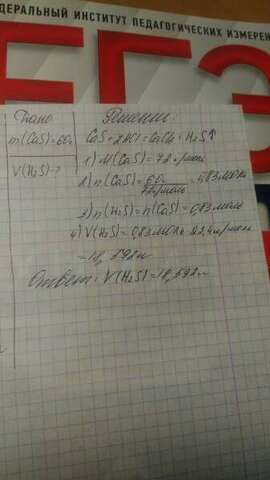 ДЕРАЛЬНЫЙ ИНСТИТУТ ПЕДАГОГИЧЕСКИХ ИЗМЕРЕН
ЕГЭ
Дано
Решение
m(CaS)=60г
CaS+2HCl=CaCl₂+H₂S↑
V(H₂S)-?
1) M(CaS)=72 г/моль
2) n(CaS)=60г/72г/моль=0,83моль
3) n(H₂S)=n(CaS)=0,83моль
4) V(H₂S)=0,83моль·22,4л/моль
=18,592л
Ответ: V(H₂S)=18,592л